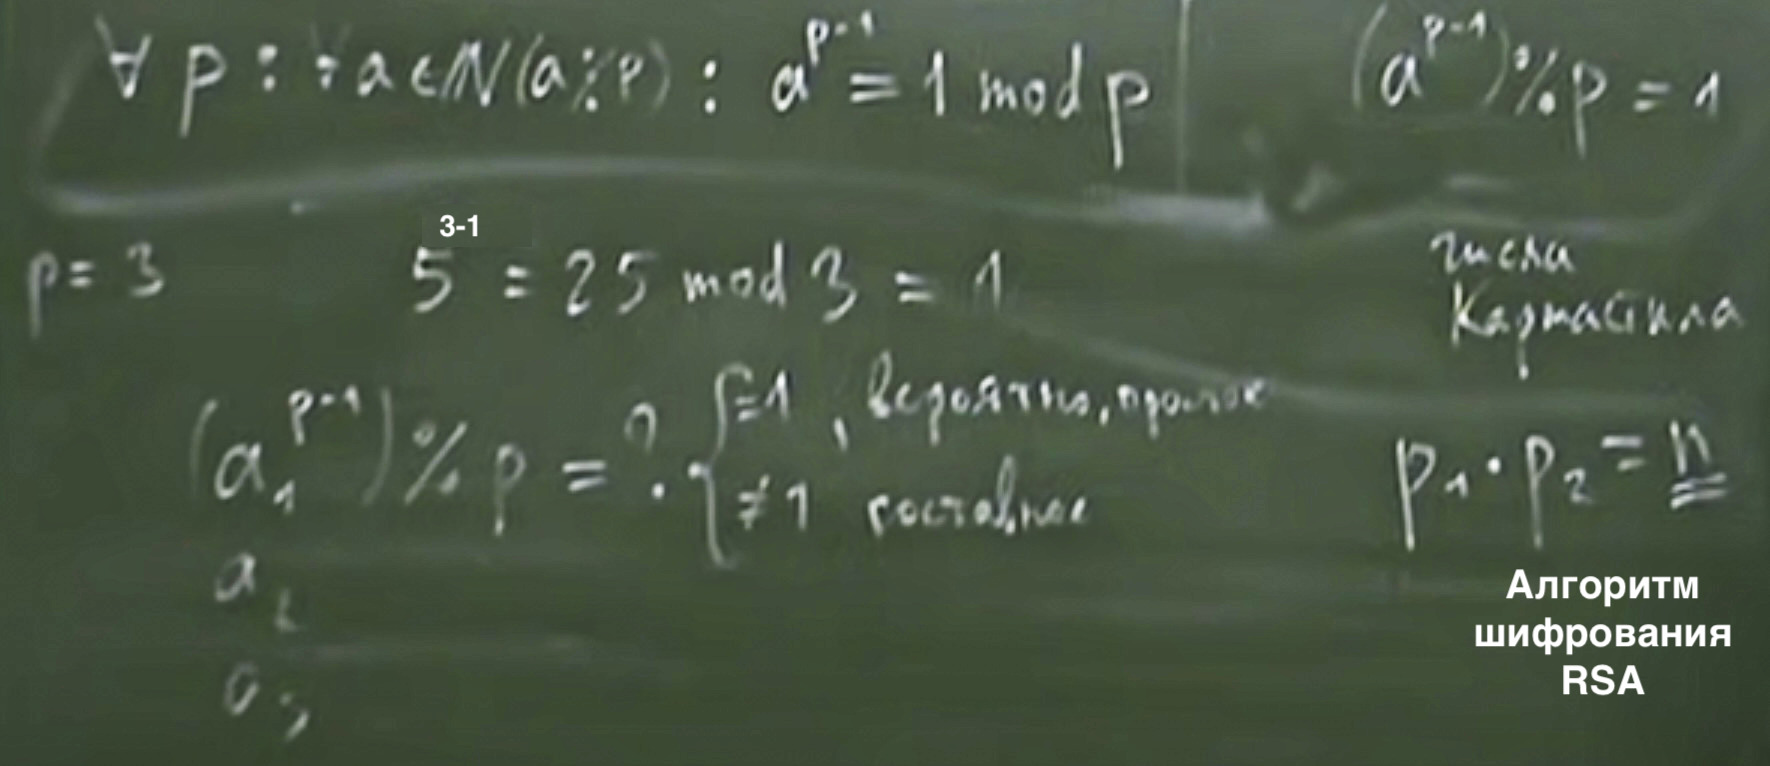 ∀ p : ∀ a ∈ N (a ⋮̸ p) : a^{p-1} = 1 mod p
(a^{p-1}) % p = 1
p = 3
5^{3-1} = 25 mod 3 = 1
числа
Кармайкла
(a_1^{p-1}) % p = ? { =1, вероятно, простое
≠1 составное
a_2
a_3
p_1 · p_2 = n
Алгоритм
шифрования
RSA